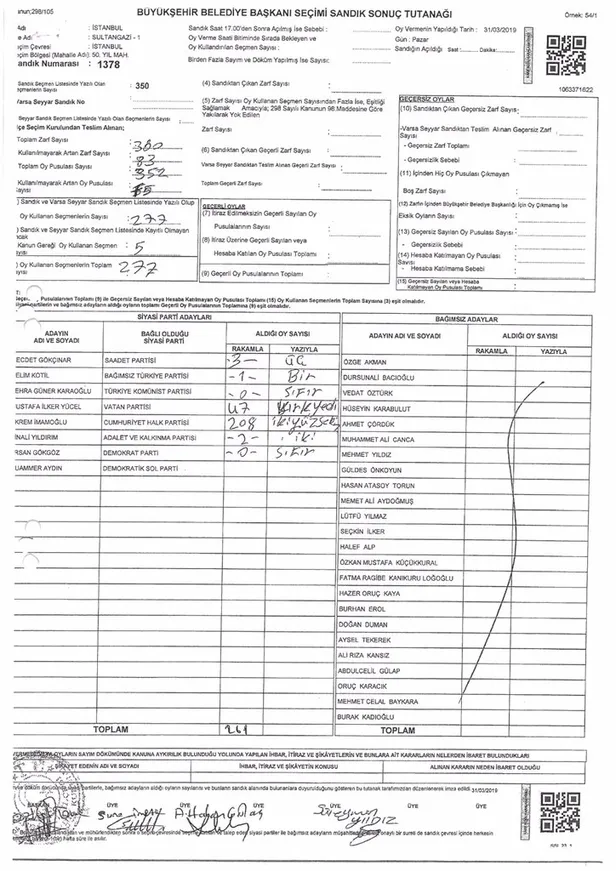 anun;298/105
BÜYÜKŞEHİR BELEDİYE BAŞKANI SEÇİMİ SANDIK SONUÇ TUTANAĞI
Örnek: 54/1
Adı : İSTANBUL
e Adı : SULTANGAZİ - 1
çim Çevresi : İSTANBUL
çim Bölgesi (Mahalle Adı): 50. YIL MAH.
andık Numarası : 1378
Sandık Saat 17.00'den Sonra Açılmış İse Sebebi :
Oy Verme Saati Bitiminde Sırada Bekleyen ve
Oy Kullandırılan Seçmen Sayısı :
Birden Fazla Sayım ve Döküm Yapılmış İse Sayısı :
Oy Vermenin Yapıldığı Tarih : 31/03/2019
Gün : Pazar
Sandığın Açıldığı Saat : Dakika:
1063371622
Sandık Seçmen Listesinde Yazılı Olan
eçmenlerin Sayısı : 350
Varsa Seyyar Sandık No :
Seyyar Sandık Seçmen Listesinde Yazılı Olan Seçmen Sayısı :
lçe Seçim Kurulundan Teslim Alınan;
Toplam Zarf Sayısı : 360
Kullanılmayarak Artan Zarf Sayısı : 83
Toplam Oy Pusulası Sayısı : 352
Kullanılmayarak Artan Oy Pusulası
Sayısı
) Sandık ve Varsa Seyyar Sandık Seçmen Listesinde Yazılı Olup
Oy Kullanan Seçmenlerin Sayısı : 277
) Sandık ve Seyyar Sandık Seçmen Listesinde Kayıtlı Olmayan
Kanun Gereği Oy Kullanan Seçmen : 5
Sayısı
) Oy Kullanan Seçmenlerin Toplamı : 277
(4) Sandıktan Çıkan Zarf Sayısı :
(5) Zarf Sayısı Oy Kullanan Seçmen Sayısından Fazla İse, Eşitliği
Sağlamak Amacıyla; 298 Sayılı Kanunun 98.Maddesine Göre
Yakılarak Yok Edilen
Zarf Sayısı :
(6) Sandıktan Çıkan Geçerli Zarf Sayısı :
Varsa Seyyar Sandıktan Teslim Alınan Geçerli Zarf Sayısı :
Toplam Geçerli Zarf Sayısı :
GEÇERLİ OYLAR
(7) İtiraz Edilmeksizin Geçerli Sayılan Oy
Pusulalarının Sayısı :
(8) İtiraz Üzerine Geçerli Sayılan veya
Hesaba Katılan Oy Pusulası Toplamı :
(9) Geçerli Oy Pusulalarının Toplamı :
GEÇERSİZ OYLAR
(10) Sandıktan Çıkan Geçersiz Zarf Sayısı :
-Varsa Seyyar Sandıktan Teslim Alınan Geçersiz Zarf
Sayısı :
- Geçersiz Zarf Toplamı :
- Geçersizlik Sebebi :
(11) İçinden Hiç Oy Pusulası Çıkmayan
Boş Zarf Sayısı :
(12) Zarfın İçinden Büyükşehir Belediye Başkanlığı İçin Oy Çıkmamış İse
Eksik Oyların Sayısı :
(13) Geçersiz Sayılan Oy Pusulası Sayısı :
- Geçersizlik Sebebi :
(14) Hesaba Katılmayan Oy Pusulası
Sayısı :
- Hesaba Katılmama Sebebi :
(15) Geçersiz Sayılan veya Hesaba
Katılmayan Oy Pusulası Toplamı :
Pusulalarının Toplamı (9) ile Geçersiz Sayılan veya Hesaba Katılmayan Oy Pusulası Toplamı (15) Oy Kullanan Seçmenlerin Toplam Sayısına (3) eşit olmalıdır.
ve bağımsız adayların aldığı oyların toplamı Geçerli Oy Pusulalarının Toplamına (9) eşit olmalıdır.
SİYASİ PARTİ ADAYLARI
BAĞIMSIZ ADAYLAR
ADAYIN ADI VE SOYADI BAĞLI OLDUĞU SİYASİ PARTİ ALDIĞI OY SAYISI RAKAMLA YAZIYLA
ADAYIN ADI VE SOYADI ALDIĞI OY SAYISI RAKAMLA YAZIYLA
ECDET GÖKÇINAR SAADET PARTİSİ -3- üç
ELİM KOTİL BAĞIMSIZ TÜRKİYE PARTİSİ -1- Bir
EHRA GÜNER KARAOĞLU TÜRKİYE KOMÜNİST PARTİSİ -0- SIFIR
USTAFA İLKER YÜCEL VATAN PARTİSİ 47 kırkyedi
KREM İMAMOĞLU CUMHURİYET HALK PARTİSİ 208 ikiyüzsek
İNALİ YILDIRIM ADALET VE KALKINMA PARTİSİ -2- iki
RSAN GÖKGÖZ DEMOKRAT PARTİ -0- SIFIR
UAMMER AYDIN DEMOKRATİK SOL PARTİ
ÖZGE AKMAN
DURSUNALİ BACIOĞLU
VEDAT ÖZTÜRK
HÜSEYİN KARABULUT
AHMET ÇÖRDÜK
MUHAMMET ALİ CANCA
MEHMET YILDIZ
GÜLDES ÖNKOYUN
HASAN ATASOY TORUN
MEMET ALİ AYDOĞMUŞ
LÜTFÜ YILMAZ
SEÇKİN İLKER
HALEF ALP
ÖZKAN MUSTAFA KÜÇÜKKURAL
FATMA RAGİBE KANIKURU LOĞOĞLU
HAZER ORUÇ KAYA
BURHAN EROL
DOĞAN DUMAN
AYSEL TEKEREK
ALİ RIZA KANSIZ
ABDULCELİL GÜLAP
ORUÇ KARACIK
MEHMET CELAL BAYKARA
BURAK KADIOĞLU
TOPLAM 261
TOPLAM
OYLARIN SAYIM DÖKÜMÜNDE KANUNA AYKIRILIK BULUNDUĞU YOLUNDA YAPILAN İHBAR, İTİRAZ VE ŞİKÂYETLERİN VE BUNLARA AİT KARARLARIN NELERDEN İBARET BULUNDUKLARI
ŞİKAYET EDENİN ADI VE SOYADI İHBAR, İTİRAZ VE ŞİKÂYETİN KONUSU ALINAN KARARIN NEDEN İBARET OLDUĞU
31/03/2019
BAŞKAN ÜYE ÜYE ÜYE ÜYE
Süleyman YILDIZ